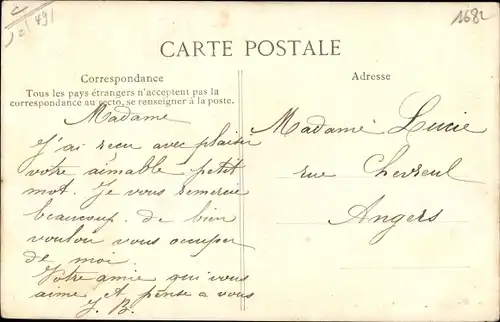 1682
CARTE POSTALE
Correspondance
Tous les pays étrangers n'acceptent pas la
correspondance au recto, se renseigner à la poste.
Madame
J'ai reçu avec plaisir
votre aimable petit
mot. Je vous remercie
beaucoup de bien
voulou vous occuper
de moi.
Votre amie qui vous
aime et pense a vous
J. B.
Adresse
Madame Lucie
rue Chevreul
Angers